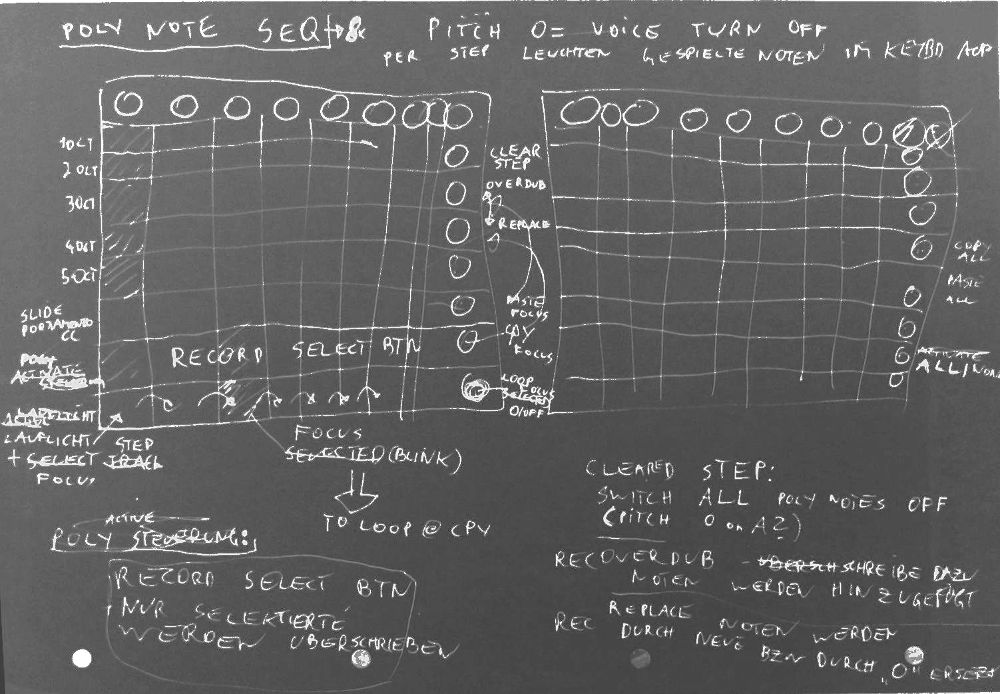 POLY NOTE SEQ
PITCH 0 = VOICE TURN OFF
PER STEP LEUCHTEN GESPIELTE NOTEN IM KEYBD AUF
1 OCT
2 OCT
3 OCT
4 OCT
5 OCT
SLIDE
PORTAMENTO
CC
POLY
ACTIVATE
LAUFLICHT
LAUFLICHT
+ SELECT
FOCUS
STEP
TRACK
CLEAR
STEP
OVERDUB
REPLACE
PASTE
FOCUS
CPY
FOCUS
LOOP
FOCUS
SELECTED
O/OFF
RECORD SELECT BTN
COPY
ALL
PASTE
ALL
ACTIVATE
ALL/
FOCUS
SELECTED (BLINK)
TO LOOP @ CPY
ACTIVE
POLY STEUERUNG:
RECORD SELECT BTN
NUR SELEKTIERTE
WERDEN ÜBERSCHRIEBEN
CLEARED STEP:
SWITCH ALL POLY NOTES OFF
(PITCH 0 on A2)
REC OVERDUB - ÜBERSCH SCHREIBE DAZU
NOTEN WERDEN HINZUGEFÜGT
REC REPLACE NOTEN WERDEN
DURCH NEUE BZW DURCH „0" ERSETZT